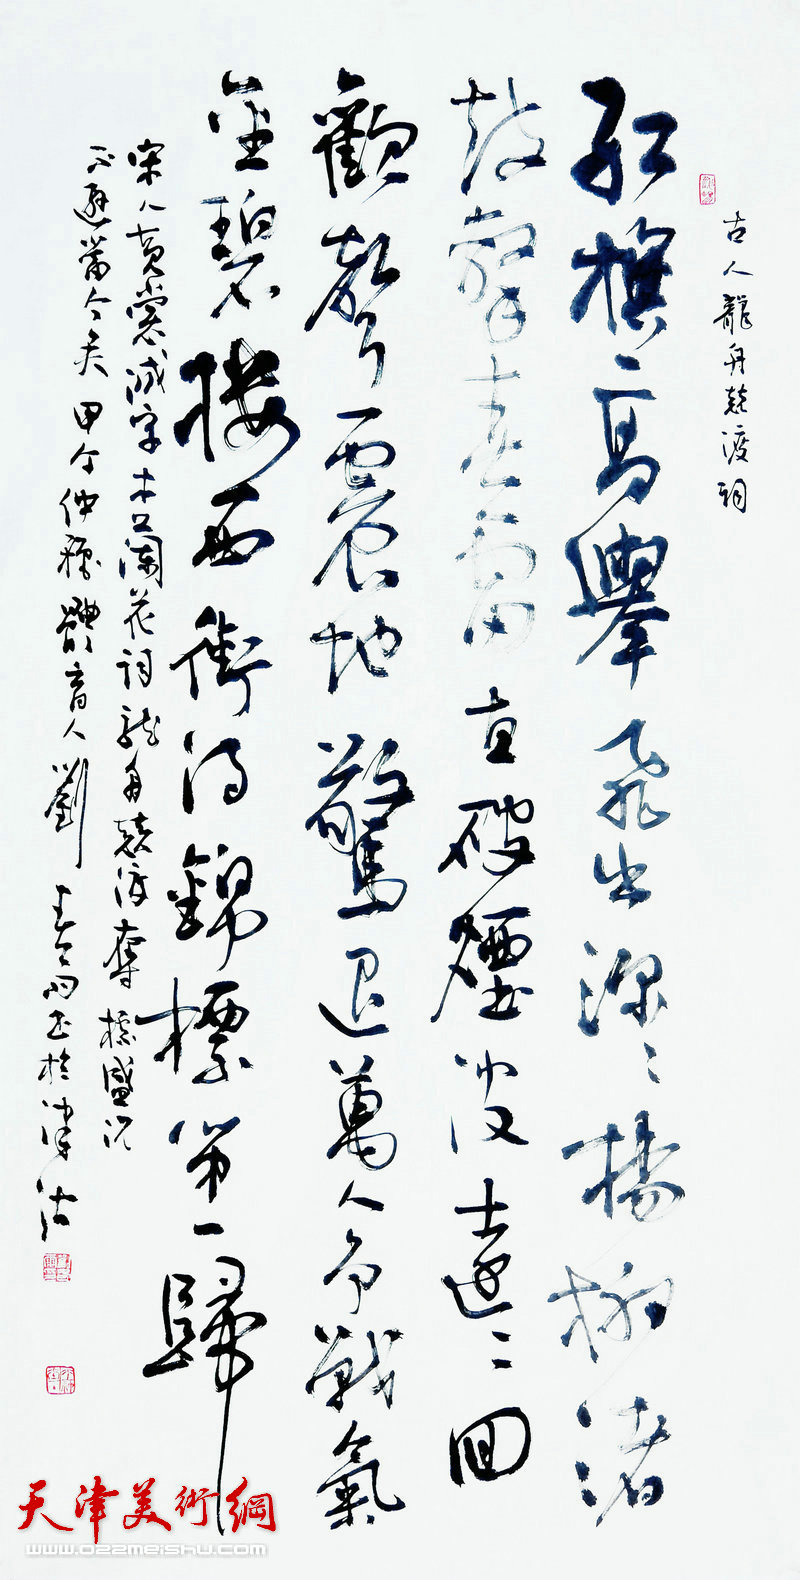 古人龍舟競渡詞
紅旗高舉飛出深〻楊柳渚
鼓擊春雷直破煙波遠〻回
歡聲震地驚退萬人爭戰氣
金碧樓西銜得錦標第一歸
宋人黄裳減字木蘭花詞龍舟競渡奪標盛況
不遜當今矣甲午仲穐體育人劉春雨書於津沽
天津美術網
www.022meishu.com